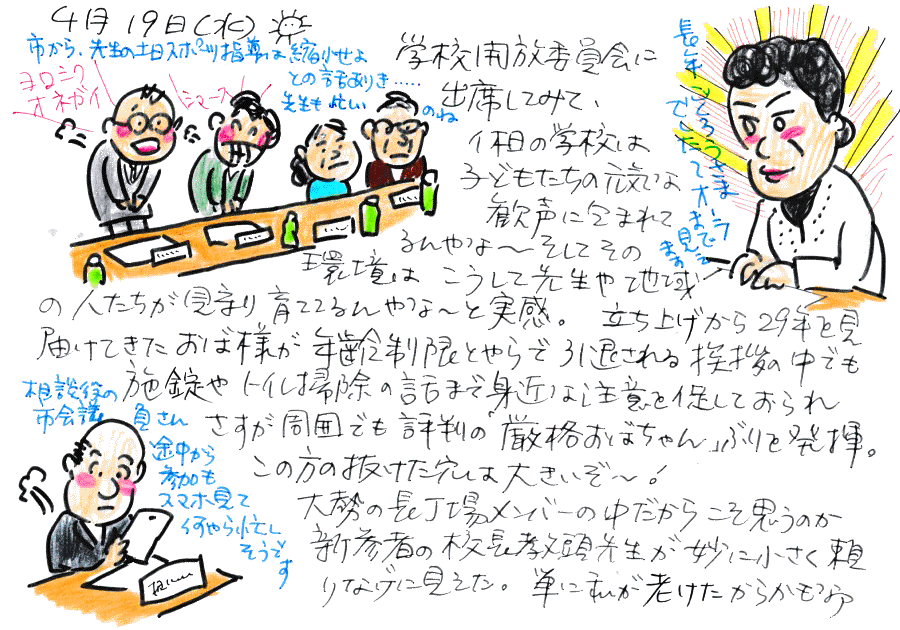 4月19日(水)
市から、先生の土日スポーツ指導は縮小せよ
との話ありき……
先生も忙しい
のね
ヨロシク
オネガイ
シマース
長年ごくろうさま
でした
学校開放委員会に
出席してみて、
休日の学校は
子どもたちの元気な
歓声に包まれて
るんやな〜そしてその
環境は こうして先生や地域
の人たちが見守り育ててるんやな〜と実感。 立ち上げから29年と見
届けてきたおば様が年齢制限とやらで引退される挨拶の中でも
施錠やトイレ掃除の話まで身近な注意を促しておられ
さすが周囲でも評判の「厳格おばちゃん」ぶりを発揮。
この方の抜けた穴は大きいぞ〜!
大勢の長丁場メンバーの中だからこそ思うのか
新参者の校長教頭先生が妙に小さく頼
りなげに見えた。 単に私が老けたからかもなア
相談役の
市会議員さん
途中から
参加も
スマホ見て
何やら忙し
そうです